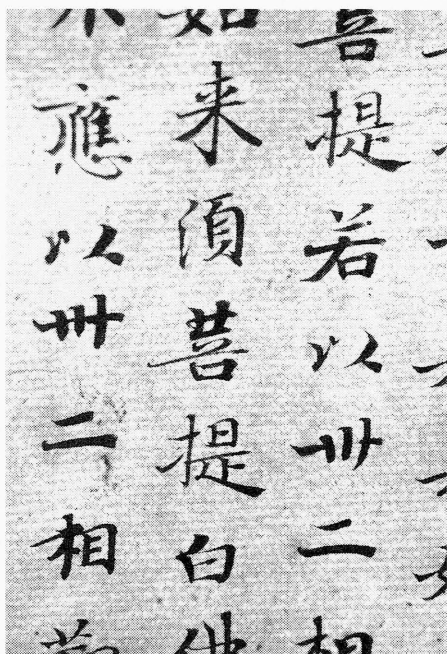 菩提若以卅二相
如来湏菩提白佛
不應以卅二相